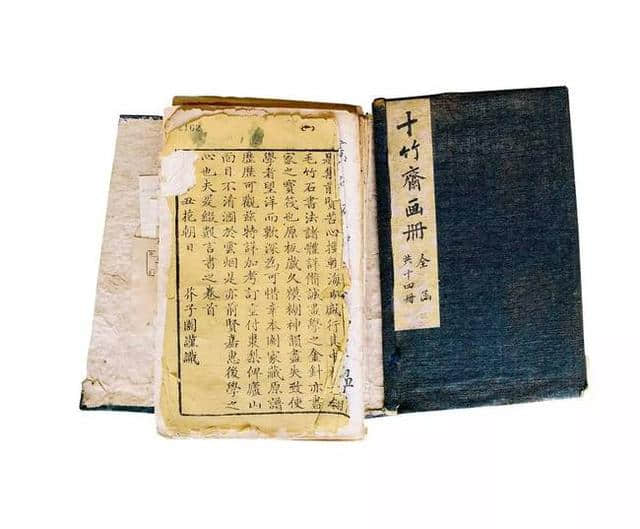 是集苦心海行其中翎
毛竹石書法諸體詳備誠畫學之金針亦書
家之寶筏也原板歲久模糊神韻盡失致使
學者望洋而歎深為可惜幸本園家藏原譜
歷歷可觀茲特詳加考訂重付棗梨俾廬山
面目不清涸於雲烟是亦前賢嘉惠後學之
心也夫爰綴數言書之卷首
丑花朝日 芥子園謹識
十竹齋画冊
全函
共十四冊